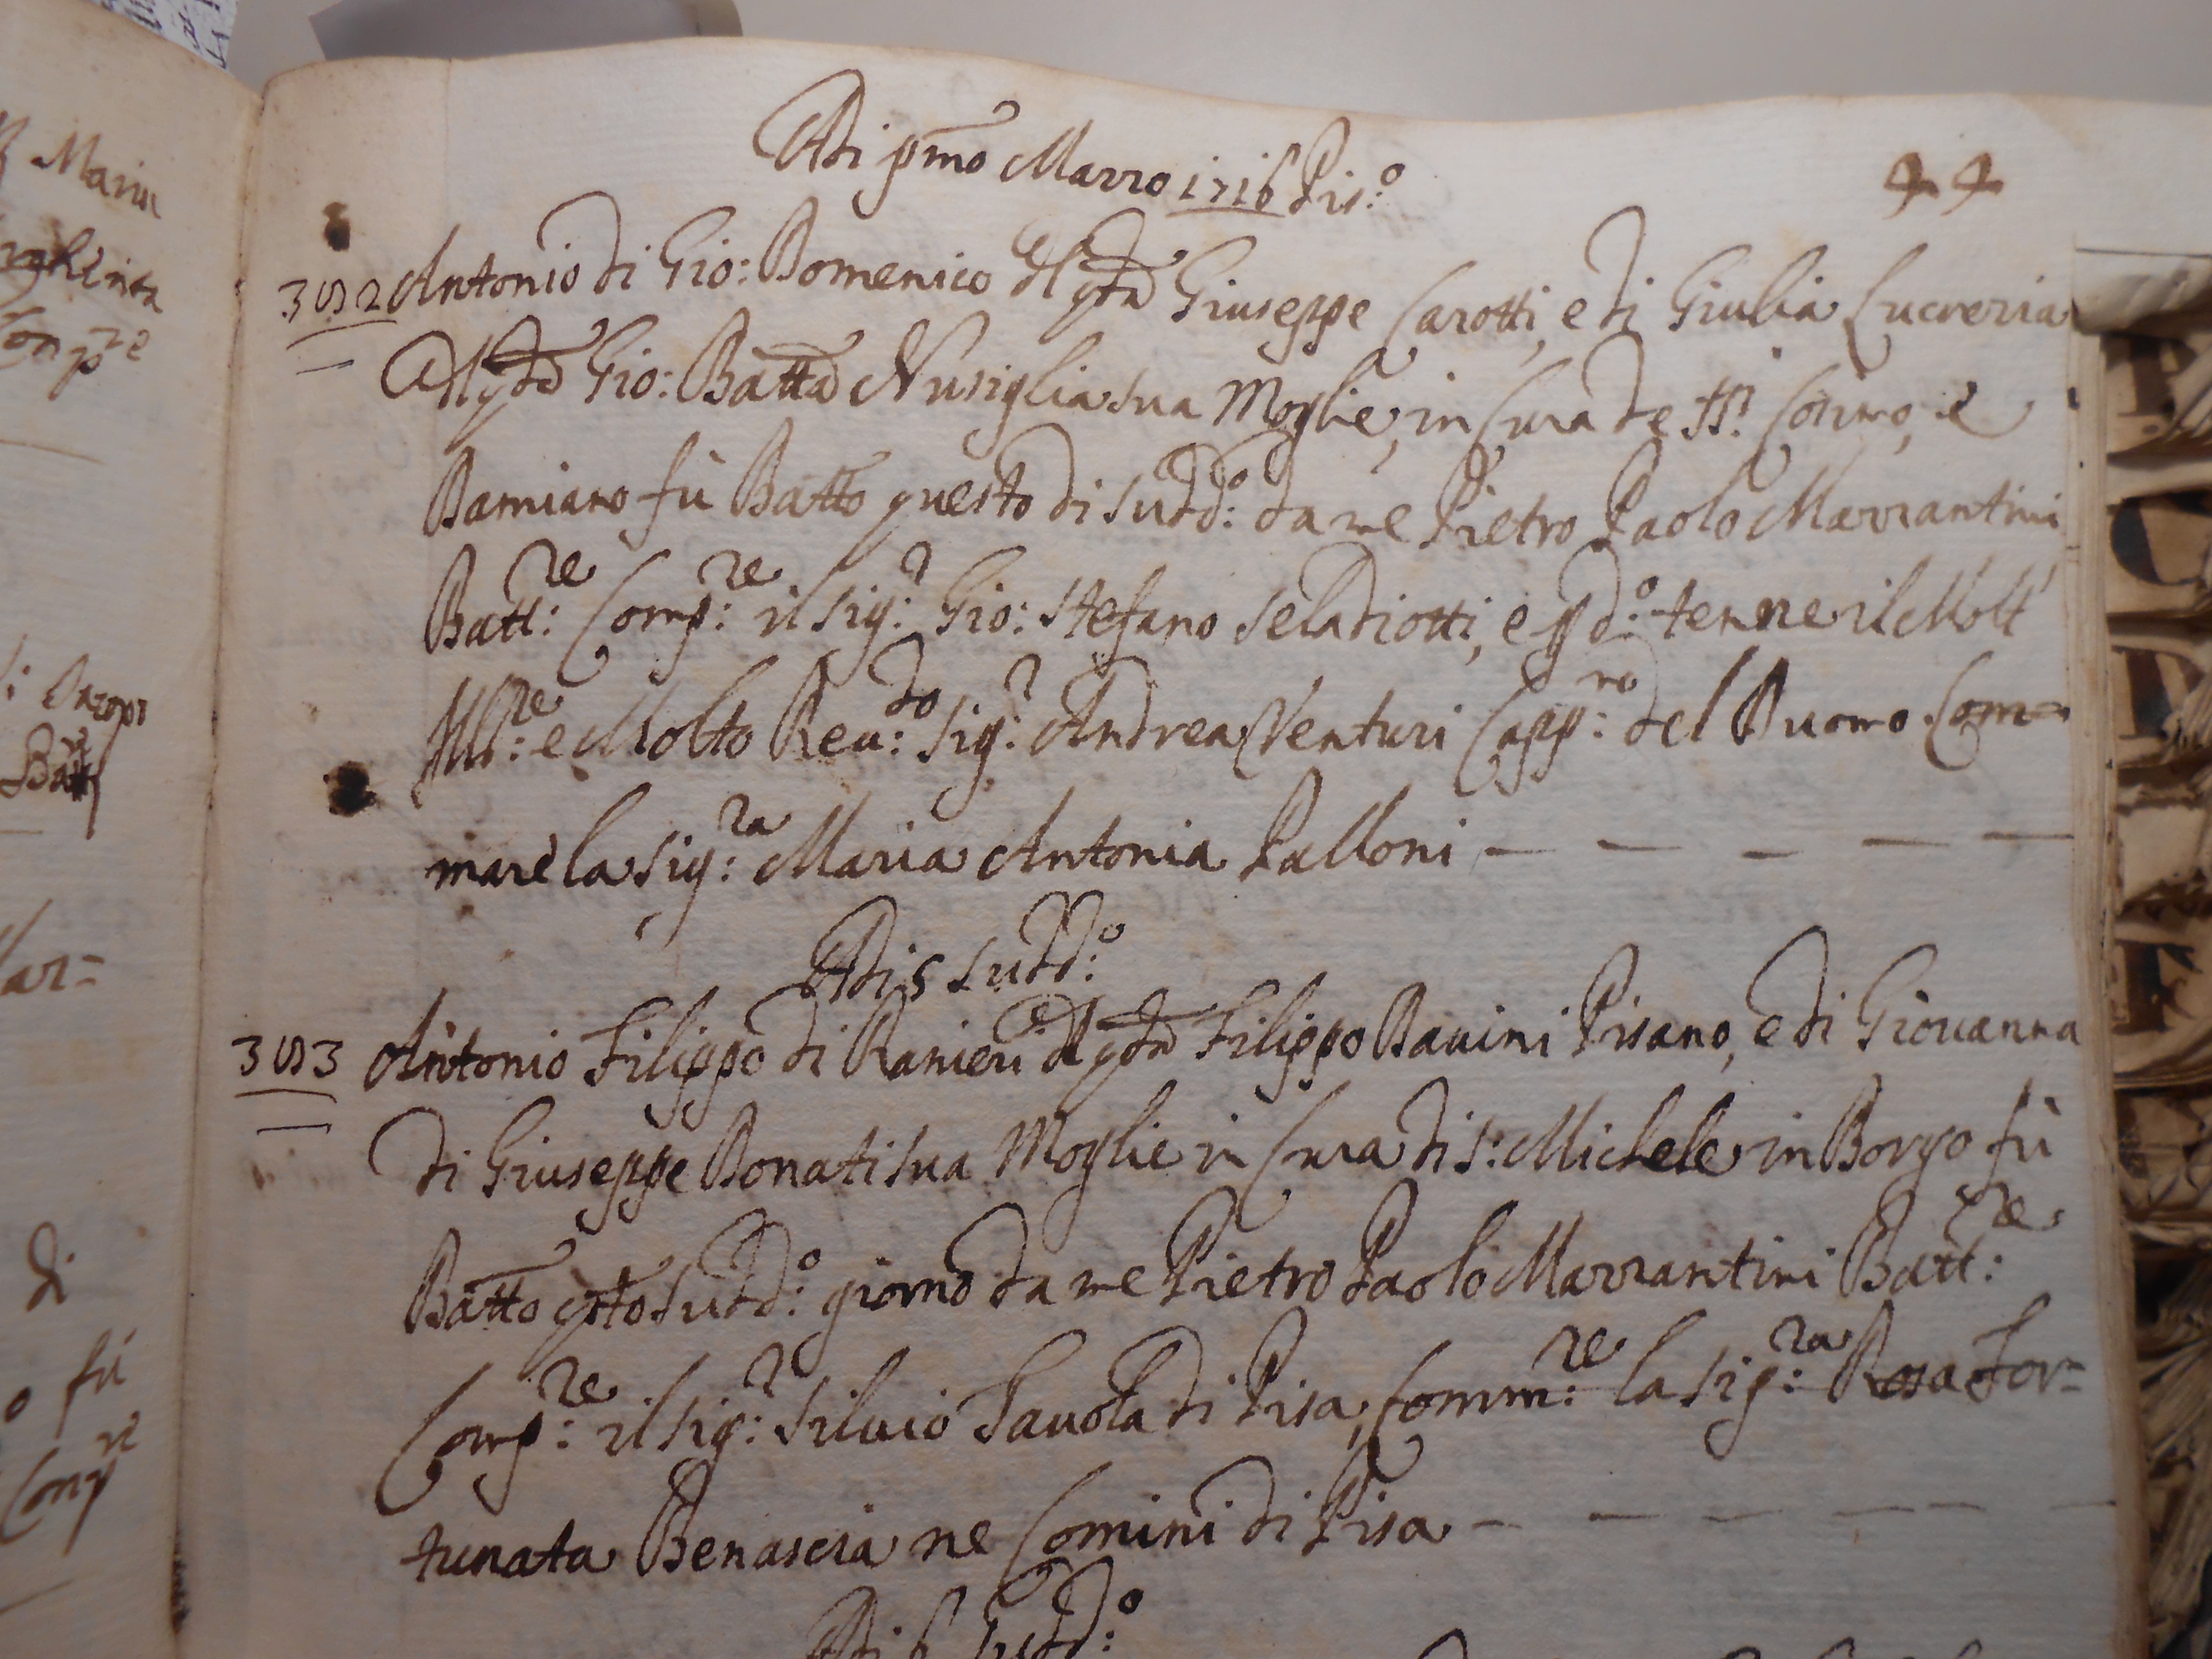 Adi pmo Marzo 1716 Pis:o
44
352 Antonio di Gio: Domenico del qdm Giuseppe Carotti, e di Giulia Lucrezia
del qdm Gio: Batta Nusiglia sua Moglie, in Cura de SS.ti Cosimo, e
Damiano fù Batto questo di sudd:o da me Pietro Paolo Mazzantini
Batt:re Comp:re il Sig:r Gio: Stefano Seladiotti, e p d:o tenne il Molt'
Ill:re e Molto Reu:do Sig:r Andrea Venturi Capp:no del Duomo Com=
mare la Sig:ra Maria Antonia Palloni
Adi 5 sudd:o
353 Antonio Filippo di Ranieri del qdm Filippo Bauini Pisano, e di Giouanna
di Giuseppe Donati sua Moglie in Cura di S: Michele in Borgo fù
Batto qsto sudd:o giorno da me Pietro Paolo Mazzantini Batt:re
Comp:re il Sig:r Siluio Tauola di Pisa, Comm:re la Sig:ra Rosa For=
tunata Benascia ne Comini di Pisa
Adi 6 sudd:o
Marin
di
fù